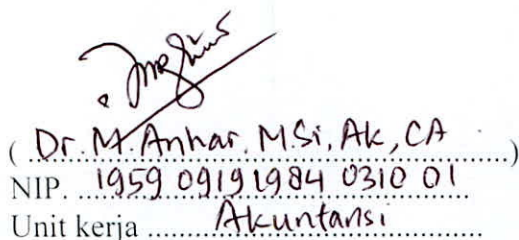 ( Dr. M. Anhar, MSi, Ak, CA )
NIP. 1959 0919 1984 0310 01
Unit kerja Akuntansi